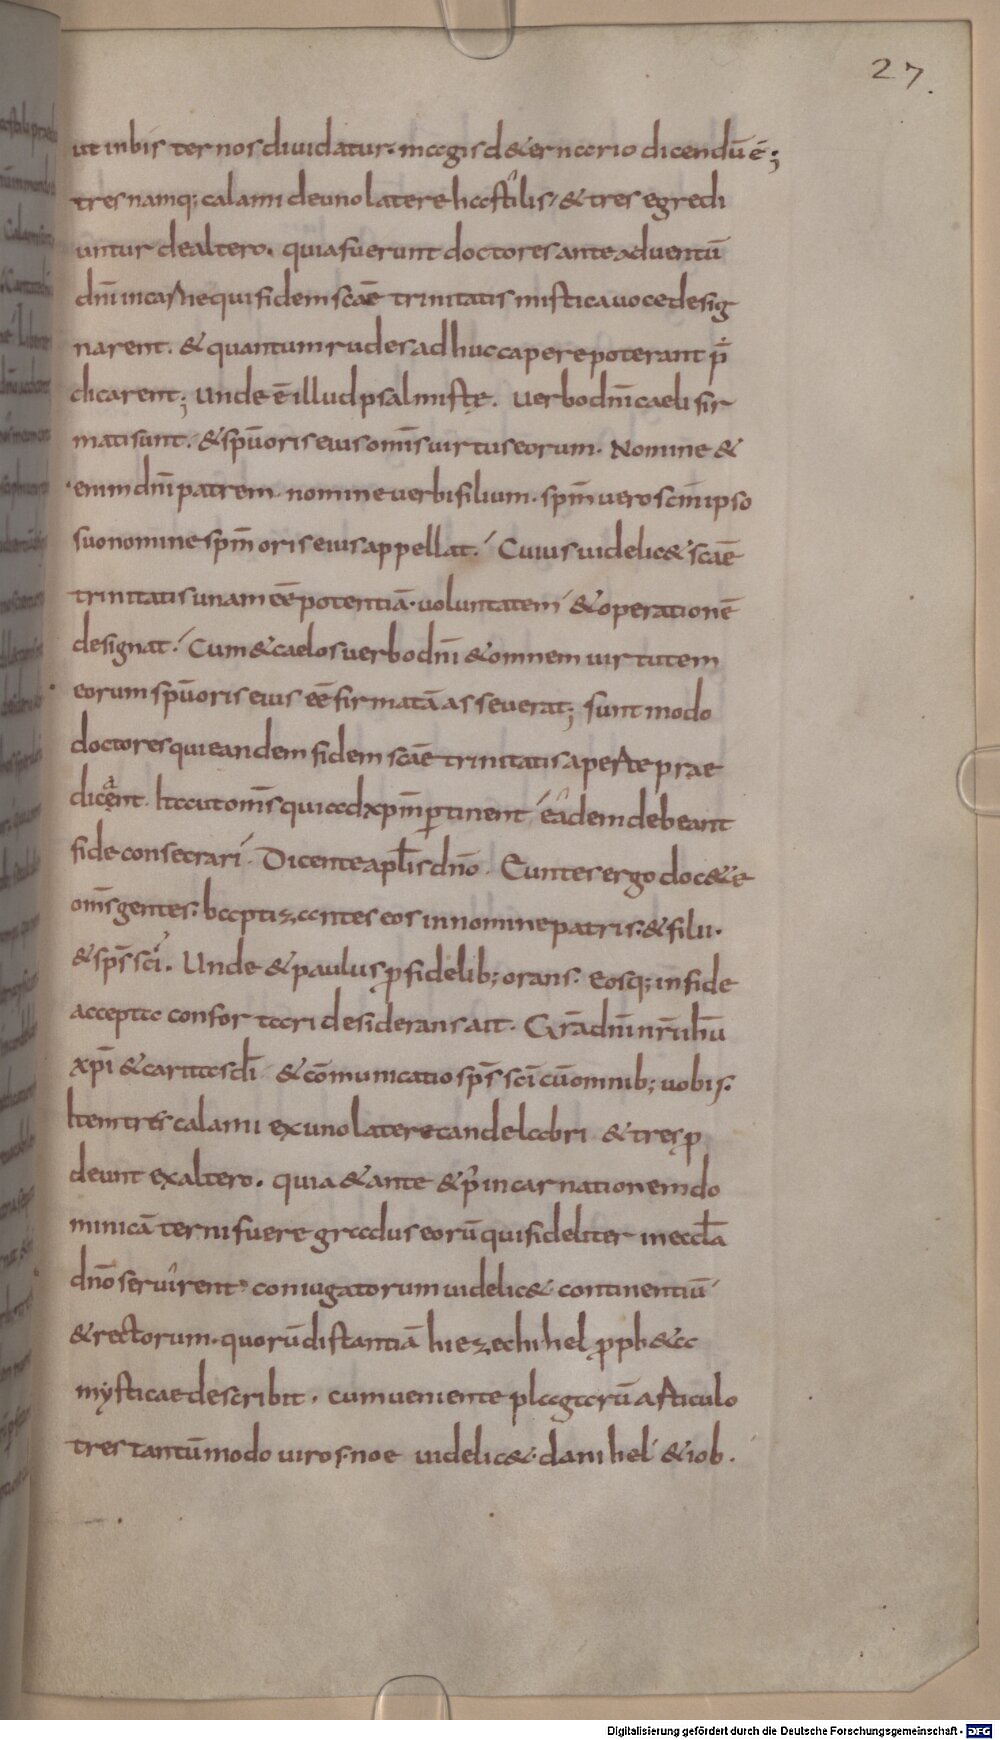 27.
ut in bis ternos diuidatur. magis de ternario dicendū ē;
tres namq; calami de uno latere hastilis, & tres egredi
untur de altero. quia fuerunt doctores ante aduentū
dn̄i in carne qui fidem scāe trinitatis mistica uoce desig
narent. & quantum rudes adhuc capere poterant p̄
dicarent; Unde ē illud psalmistę. Uerbo dn̄i caeli fir
mati sunt. & spū oris eius om̄s uirtus eorum. Nomine &
enim dn̄i patrem. nomine uerbi filium. spm̄ uero scm̄ ipso
suo nomine spm̄ oris eius appellat. Cuius uidelic& scāe
trinitatis unam eē potentiā. uoluntatem & operationē
designat. Cum & caelos uerbo dn̄i & omnem uirtutem
eorum spū oris eius eē firmatā asseuerat; sunt modo
doctores qui eandem fidem scāe trinitatis aperte prae
dicent. Ita ut om̄s qui ad xpm̄ ꝑtinent eādem debeant
fide consecrari. Dicente apl̄is dn̄o. Euntes ergo doc&e
om̄s gentes. baptizantes eos in nomine patris. & filii.
& sp̄s sc̄i. Unde & paulus ꝓ fidelib; orans. eosq; in fide
accepta confortari desiderans ait. Gr̄a dn̄i nr̄i ihū
xp̄i & caritas dī & cōmunicatio sp̄s sc̄i cū omnib; uobis.
Item tres calami ex uno latere candelabri & tres ꝓ
deunt ex altero. quia & ante & p᾽ incarnationem do
minicā terni fuere gradus eorū qui fideliter in eccl̄a
dn̄o seruirent. coniugatorum uidelic& continentiū
& rectorum. quorū distantiā hiezechihel ꝓph&a
mysticae describit. cum ueniente plagarū articulo
tres tantūmodo uiros. noe uidelic&. danihel & iob.
Digitalisierung gefördert durch die Deutsche Forschungsgemeinschaft - DFG